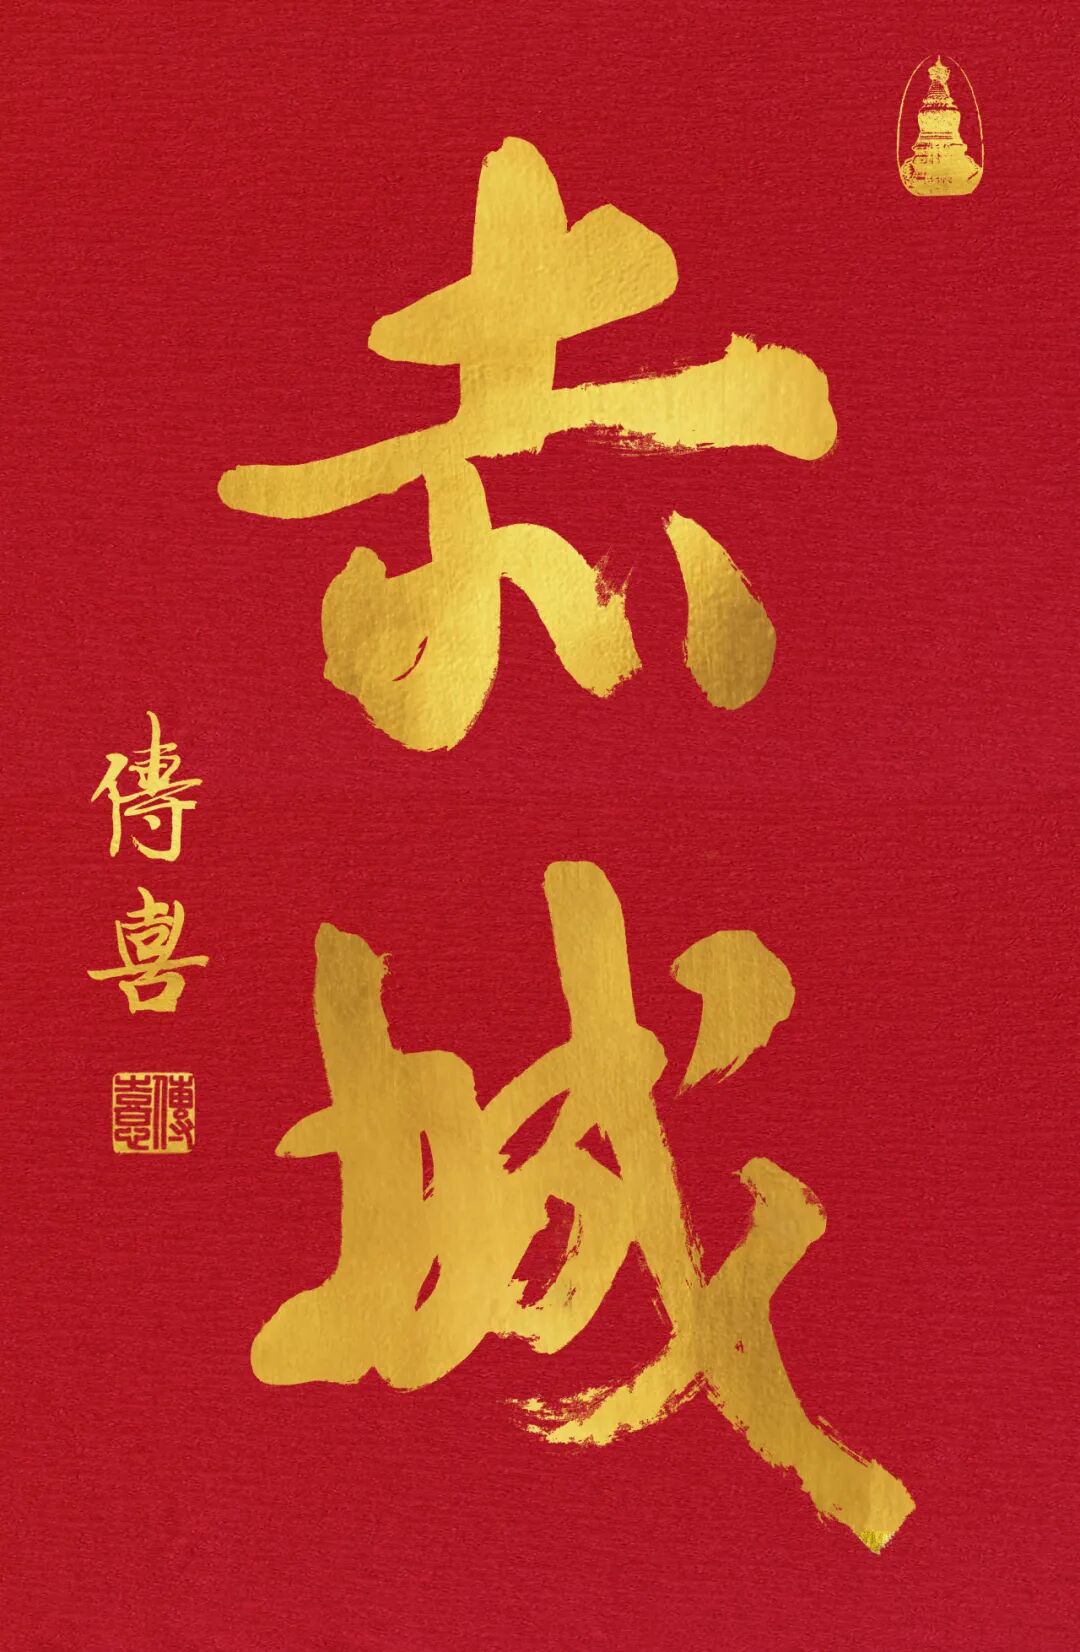 赤城
傳喜
傳喜